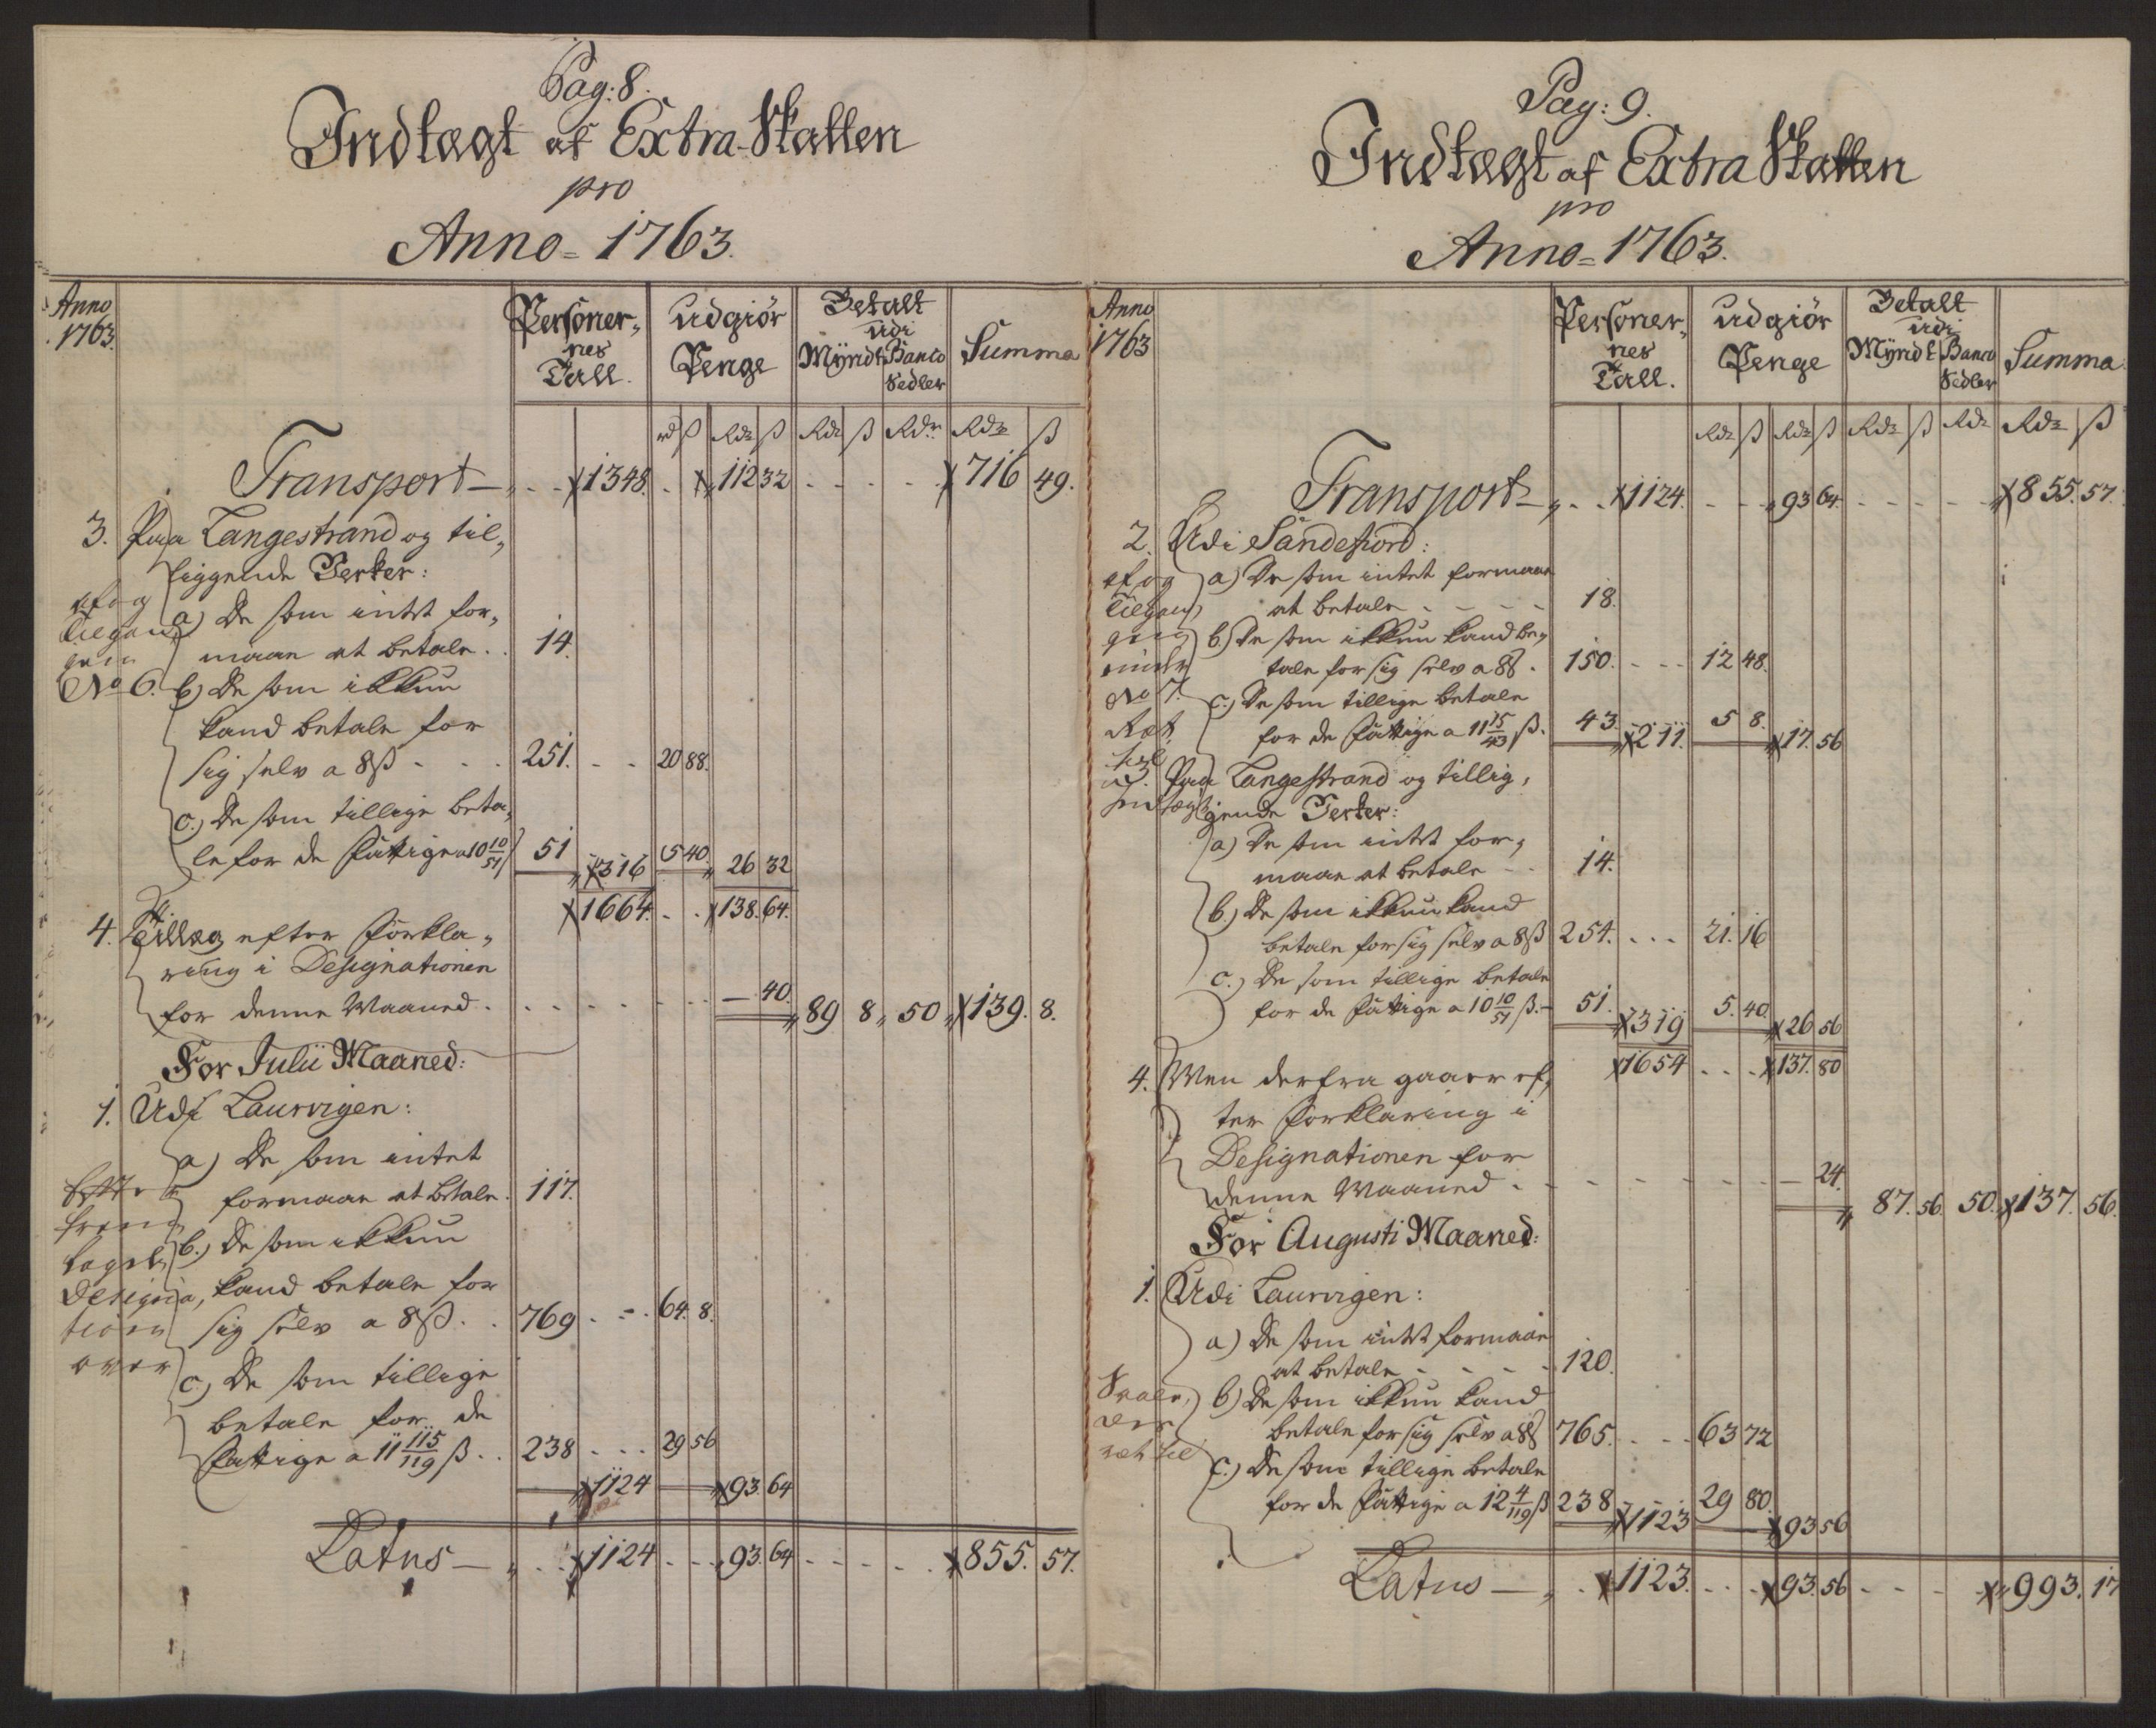 Pag: 8.
Indtægt af Extra-Skatten
pro
Anno = 1763.
Anno 1763.
Personer, nes Tall.
Udgiør Penge
Betalt udi Mÿndt Banco Sedler
Summa
rd ß Rdr ß Rdr ß Rdr Rdr ß
Transport - 1348. 112 32 716 49.
3. Paa Langestrand og til,
liggende Verker:
a) De som intet for,
maae at betale. 14.
No 6. b) De som ikkun
kand betale for
sig selv a 8 ß 251. 20 88.
c.) De som tillige beta,
le for de Fattige a 10 10/51 ß 51 316 5 40. 26 32
1664. 138. 64.
4. Tillæg efter Forkla,
ring i Designationen
for denne Maaned. - 40. 89 8 50 139. 8.
For Julii Maaned:
1. Udi Laurvigen:
a) De som intet
formaae at betale. 117.
b.) De som ikkun
kand betale for
sig selv a 8 ß. 769 64. 8.
c.) De som tillige
betale for de
Fattige a 11 115/119 ß. 238 29 56
1124 93. 64
Latus - 1124 93. 64 855. 57.
Pag: 9.
Indtægt af Extra Skatten
pro
Anno = 1763.
Anno 1763
Personer, nes Tall.
Udgiør Penge
Betalt udi Mÿndt Banco Sedler
Summa
Rdr ß Rdr ß Rdr ß Rdr Rdr ß
Transport - 1124. 93 64. 855. 57.
2. Udi Sandefiord:
a) De som intet formaae
at betale 18.
b.) De som ikkun kand be,
tale for sig selv a 8 ß. 150. 12 48.
No 7. c.) De som tillige betale
for de Fattige a 11 15/43 ß. 43. 211. 5 8. 17. 56
3. Paa Langestrand og tillig,
gende Verker:
a) De som intet for,
maae at betale 14.
b.) De som ikkun kand
betale for sig selv a 8 ß 254. 21. 16
c.) De som tillige betale
for de Fattige a 10 10/51 ß. 51. 319 5. 40. 26 56
1654 137. 80
4. Men derfra gaaer ef,
ter Forklaring i
Designationen for
denne Maaned. - 24. 87. 56. 50. 137. 56.
For Augusti Maaned:
1. Udi Laurvigen:
a) De som intet formaae
at betale 120.
b) De som ikkun kand
betale for sig selv a 8 ß 765. 63 72
c.) De som tillige betale
for de Fattige a 12 4/119 ß 238 1123 29 80. 93 56
Latus - 1123. 93. 56 993. 17